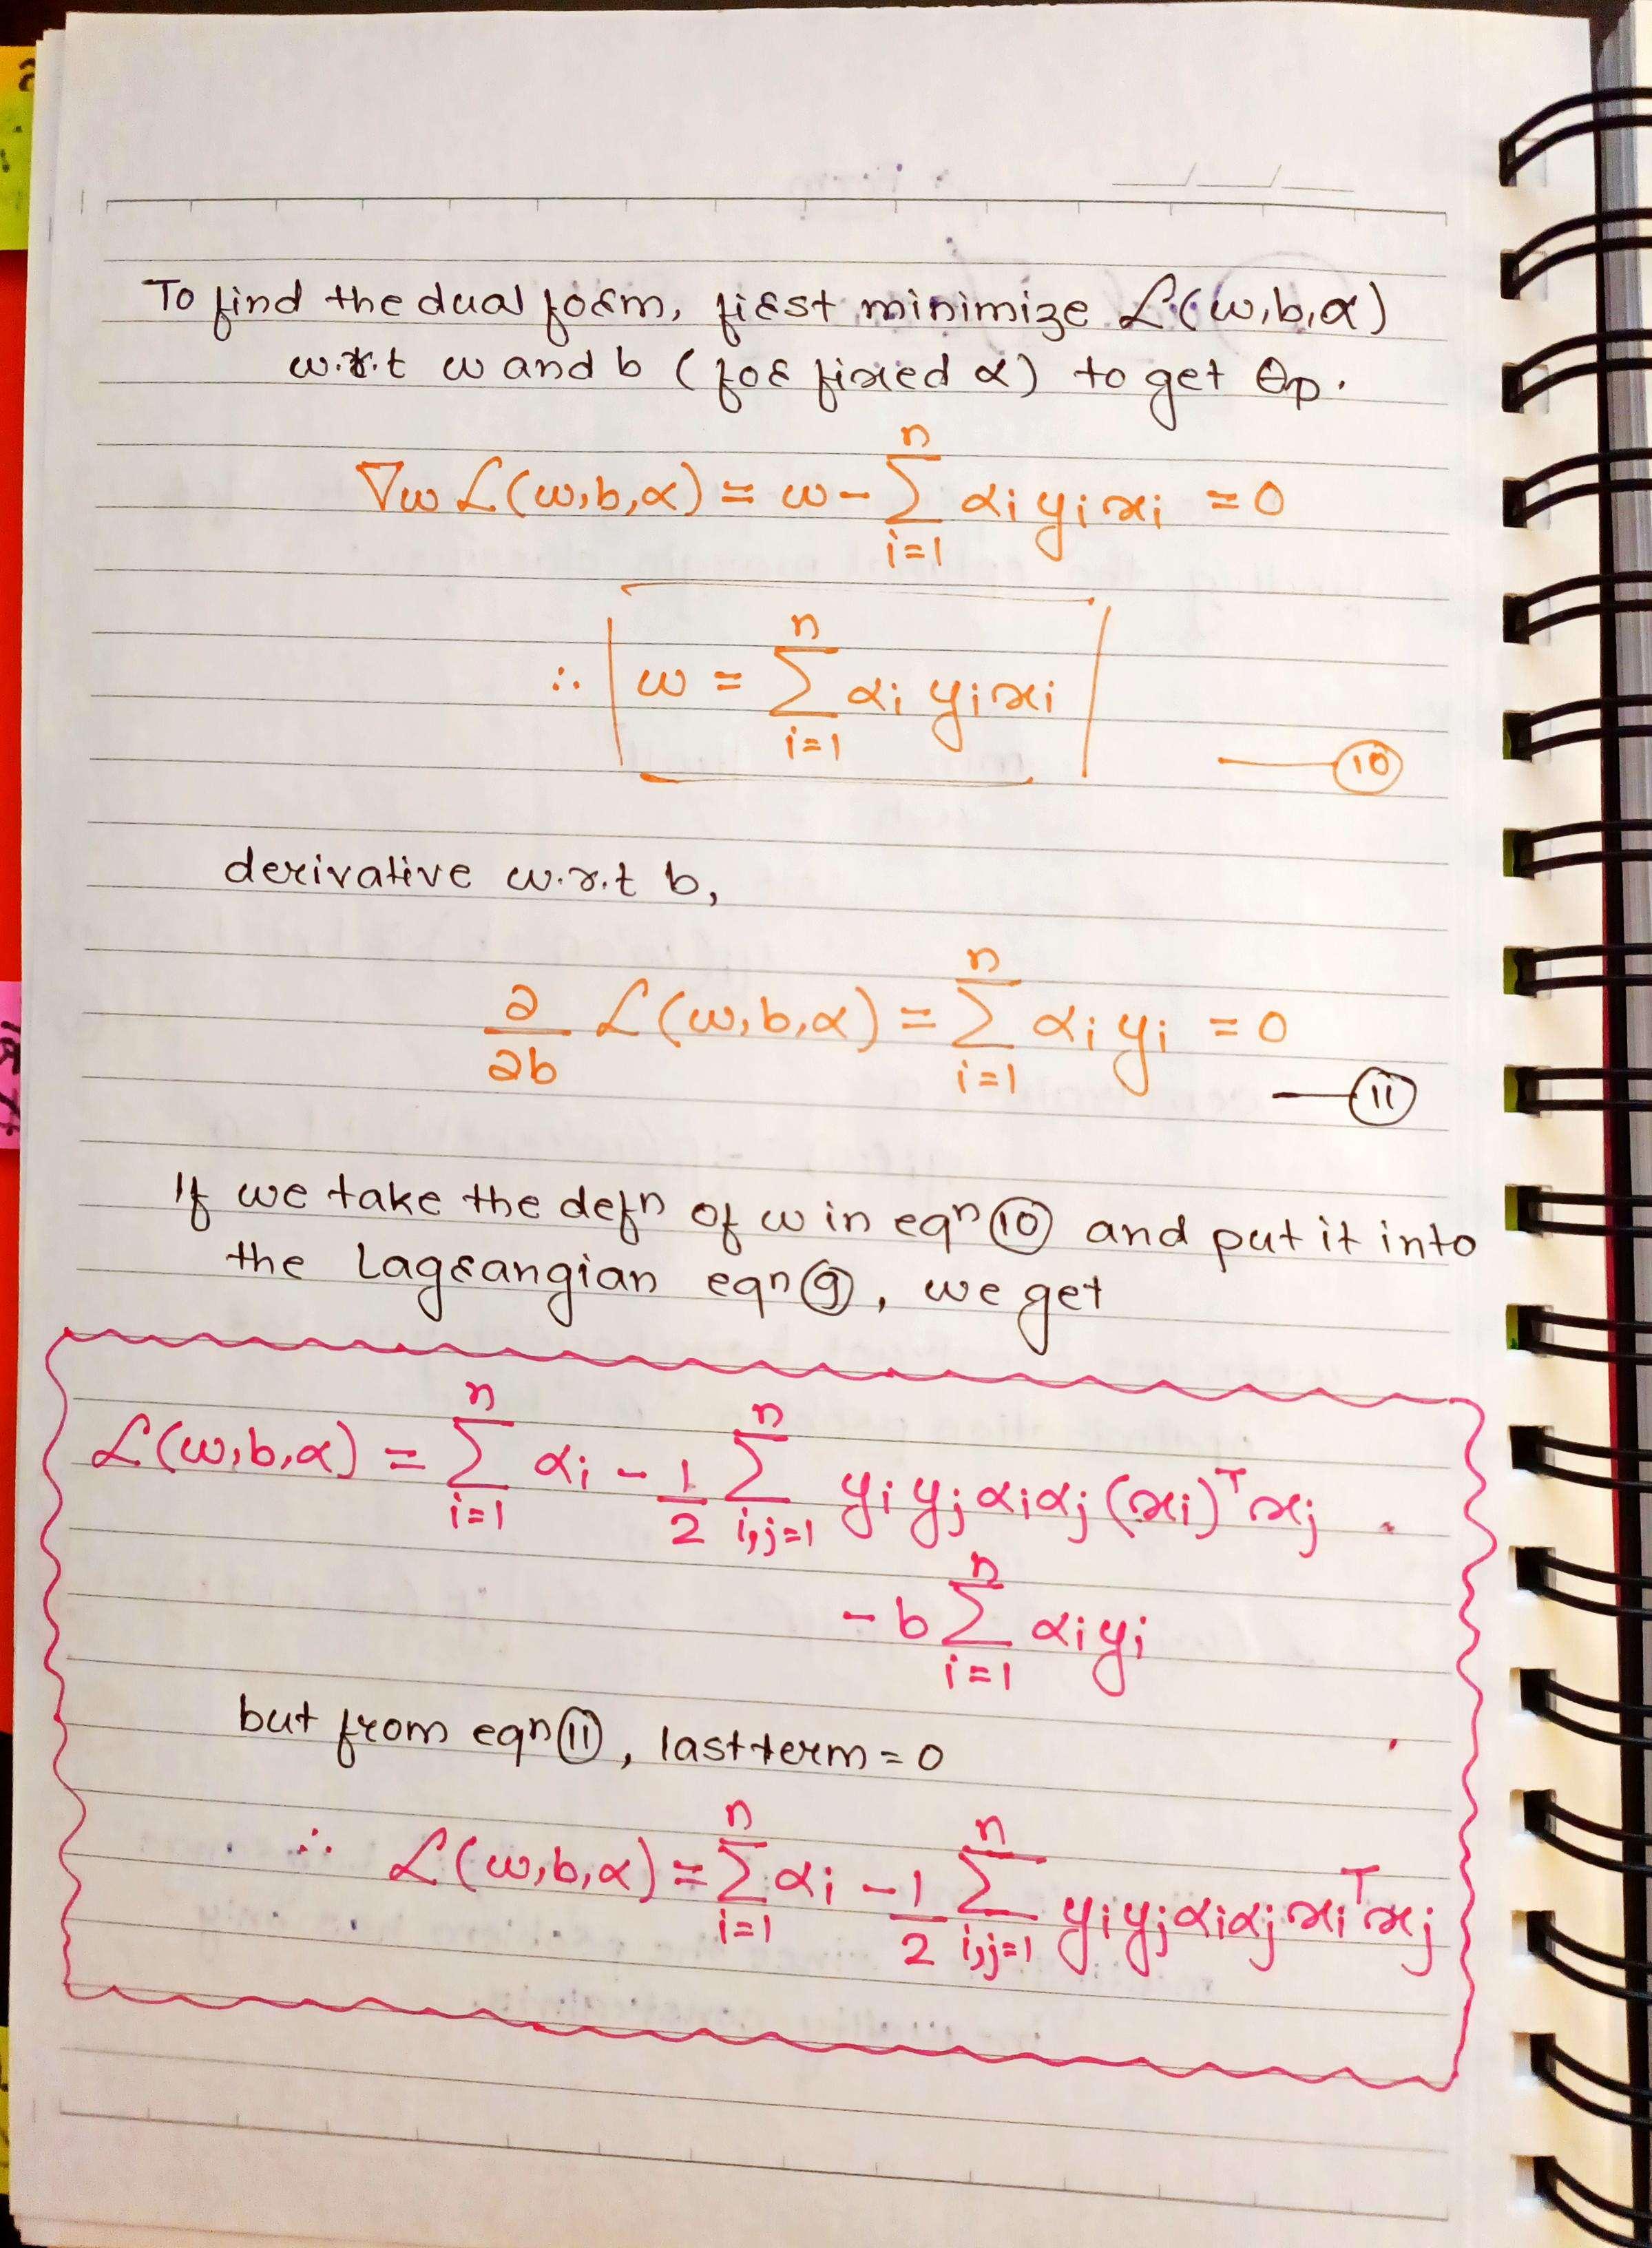 To find the dual form, first minimize ℒ(w,b,α)
w.r.t w and b (for fixed α) to get θp.
∇w ℒ(w,b,α) = w - ∑_{i=1}^{n} αi yi xi = 0
∴ w = ∑_{i=1}^{n} αi yi xi
— ⑩
derivative w.r.t b,
∂/∂b ℒ(w,b,α) = ∑_{i=1}^{n} αi yi = 0
— ⑪
If we take the defn of w in eqn ⑩ and put it into
the Lagrangian eqn ⑨, we get
ℒ(w,b,α) = ∑_{i=1}^{n} αi - 1/2 ∑_{i,j=1}^{n} yi yj αi αj (xi)^T xj
- b ∑_{i=1}^{n} αi yi
but from eqn ⑪, last term = 0
∴ ℒ(w,b,α) = ∑_{i=1}^{n} αi - 1/2 ∑_{i,j=1}^{n} yi yj αi αj xi^T xj